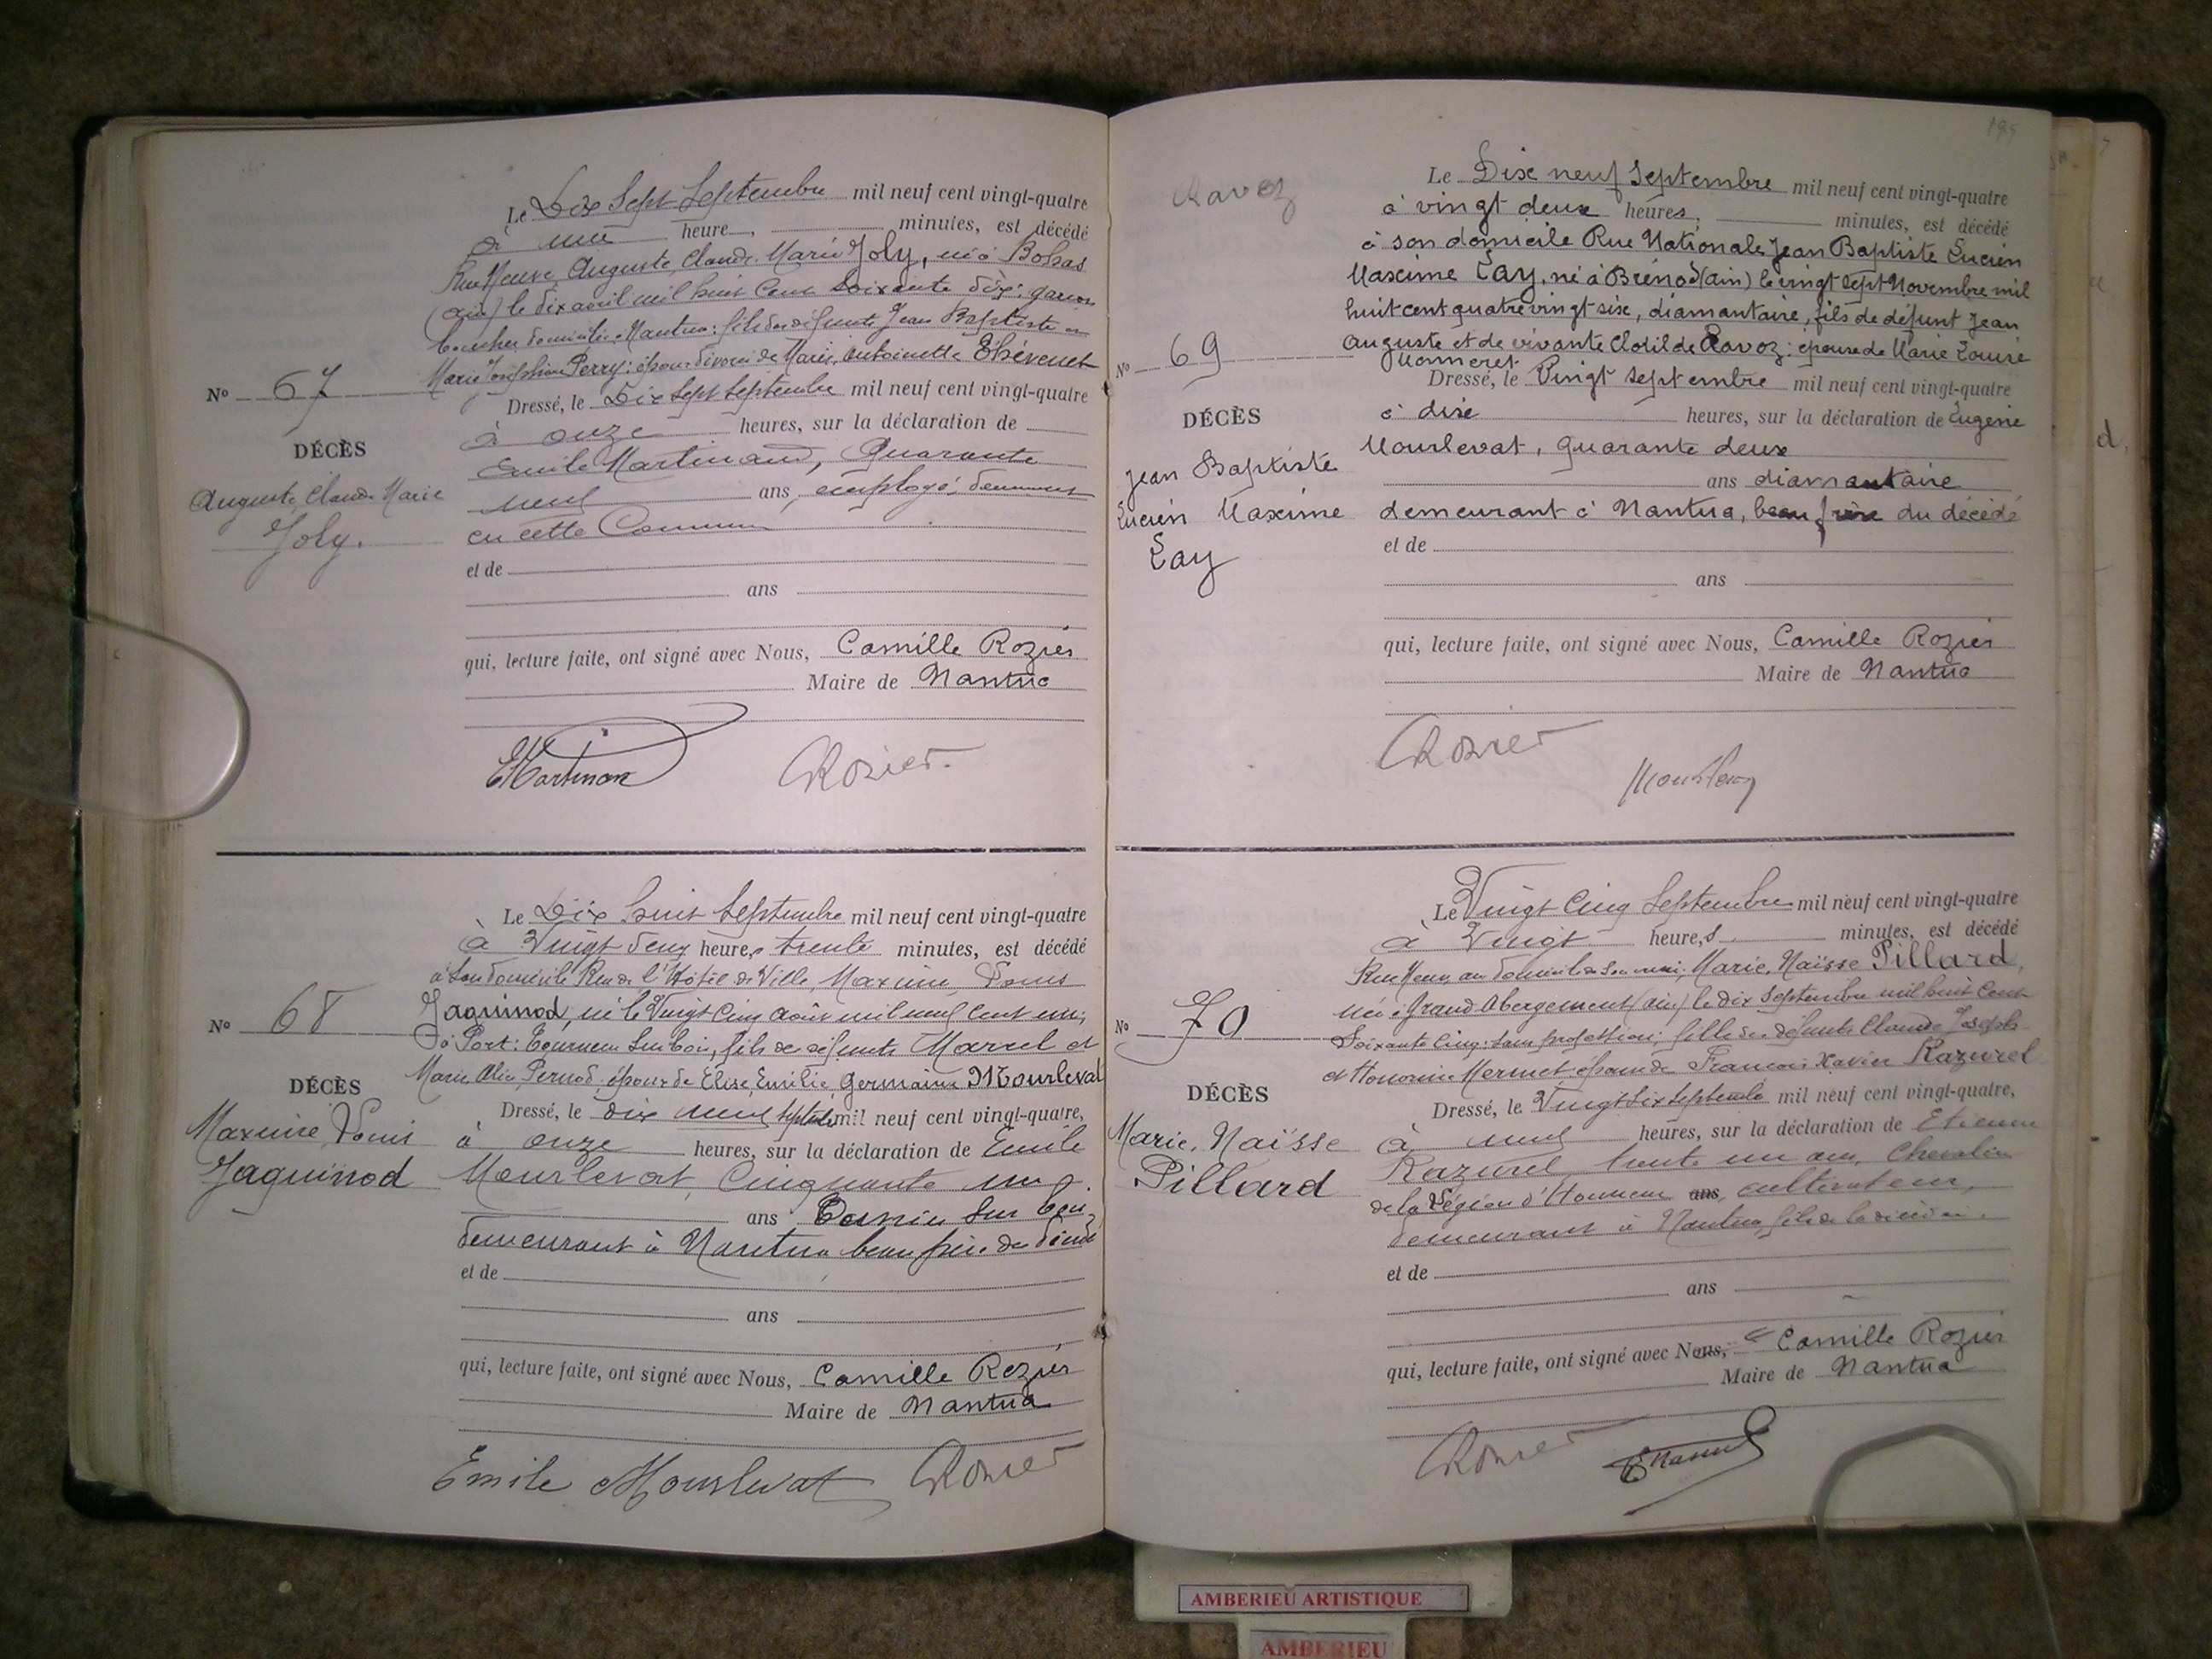 Le Dix Sept Septembre mil neuf cent vingt-quatre
à une heure, minutes, est décédé
Rue Neuve, Auguste, Claude, Marie Joly, né à Bohas
(ain) le dix avril mil huit cent soixante dix: garçon
boucher, domicilié à Nantua: fils des défunts Jean Baptiste et
Marie Josephine Perry: époux divorcé de Marie, Antoinette Thévenet
No 67
Dressé, le Dix Sept Septembre mil neuf cent vingt-quatre
à onze heures, sur la déclaration de
DÉCÈS
Emile Martinand, Quarante
Auguste, Claude, Marie
neuf ans, employé, demeurant
Joly.
en cette Commune
et de
ans
qui, lecture faite, ont signé avec Nous, Camille Rozier
Maire de Nantua
EMartinan
CRozier
Le Dix huit Septembre mil neuf cent vingt-quatre
à Vingt deux heures trente minutes, est décédé
à son domicile Rue de l'Hôtel de Ville, Maxime, Louis
Jaquinod, né le Vingt Cinq août mil neuf cent un,
No 68
à Port: Tourneur sur bois, fils de défunts Marcel et
Marie Pernod, époux de Elise, Emilie, Germaine Mourlevat
DÉCÈS
Dressé, le dix neuf septembre mil neuf cent vingt-quatre,
Maxime, Louis
à onze heures, sur la déclaration de Emile
Jaquinod
Mourlevat, Cinquante un
ans sur bois,
demeurant à Nantua beau père du
et de
ans
qui, lecture faite, ont signé avec Nous, Camille Rozier
Maire de Nantua
Emile Mourlevat
CRozier
195
Ravoz
Le Dix neuf Septembre mil neuf cent vingt-quatre
à vingt deux heures, minutes, est décédé
à son domicile Rue Nationale, Jean Baptiste Lucien
Maxime Lay, né à Brénod (ain) le vingt sept Novembre mil
huit cent quatre vingt six, diamantaire, fils de défunt Jean
Auguste et de vivante Clotilde Ravoz: epoux de Marie Louise
Monneret
No 69
Dressé, le Vingt septembre mil neuf cent vingt-quatre
à dix heures, sur la déclaration de Eugène
DÉCÈS
Mourlevat, quarante deux
Jean Baptiste
ans diamantaire
Lucien Maxime
demeurant à Nantua, beau frère du décédé
Lay
et de
ans
qui, lecture faite, ont signé avec Nous, Camille Rozier
Maire de Nantua
CRozier
Le Vingt Cinq Septembre mil neuf cent vingt-quatre
à Vingt heures minutes, est décédé
Rue Neuve, au domicile de son mari, Marie, Naïsse Pillard,
née à Grand Abergement (ain) le dix septembre mil huit cent
No 70
soixante cinq: sans profession, fille de défunts Claude Joseph
et Honorine Mermet: épouse de François Xavier Razurel
DÉCÈS
Dressé, le Vingt Six Septembre mil neuf cent vingt-quatre,
Marie, Naïsse
à neuf heures, sur la déclaration de Etienne
Pillard
Razurel, trente un ans, Chevalier
de la Légion d'Honneur ans, cultivateur,
demeurant à Nantua, fils de la décédée.
et de
ans
qui, lecture faite, ont signé avec Nous, Camille Rozier
Maire de Nantua
CRozier
AMBERIEU ARTISTIQUE
AMBERIEU